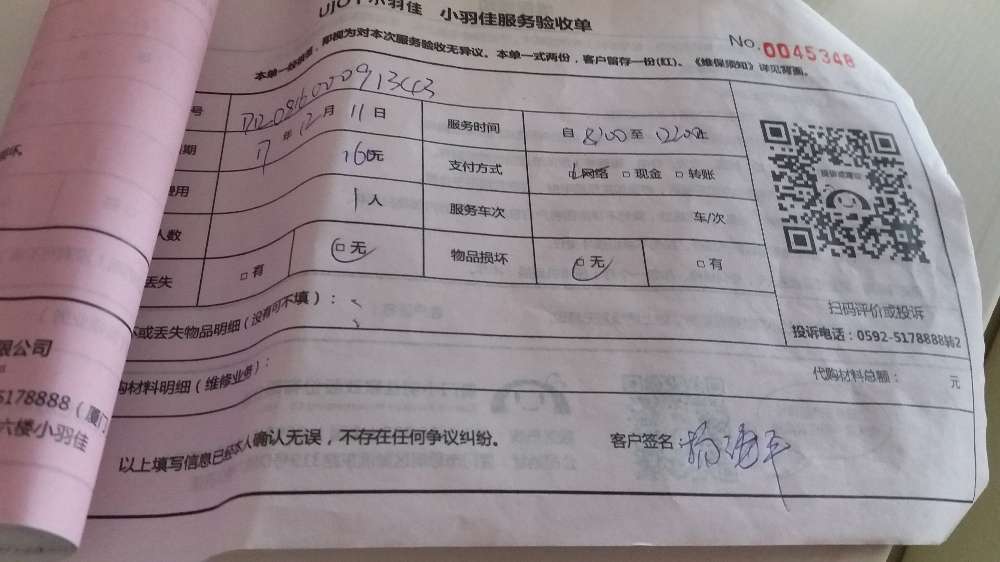 小羽佳 小羽佳服务验收单
No. 0045348
即视为对本次服务验收无异议。本单一式两份，客户留存一份(红)。《维保须知》详见背面。
号
期 17 年 12 月 11 日 服务时间 自 8:00 至 12:00 止
费用 160 元 支付方式 □网络 □现金 □转账
人数 1 人 服务车次 车/次
丢失 □有 □无 物品损坏 □无 □有
坏或丢失物品明细（没有可不填）：
购材料明细（维修业务）： 代购材料总额： 元
以上填写信息已经本人确认无误，不存在任何争议纠纷。 客户签名
扫码评价或投诉
投诉电话：0592-5178888转2
限公司
5178888（厦门
六楼小羽佳